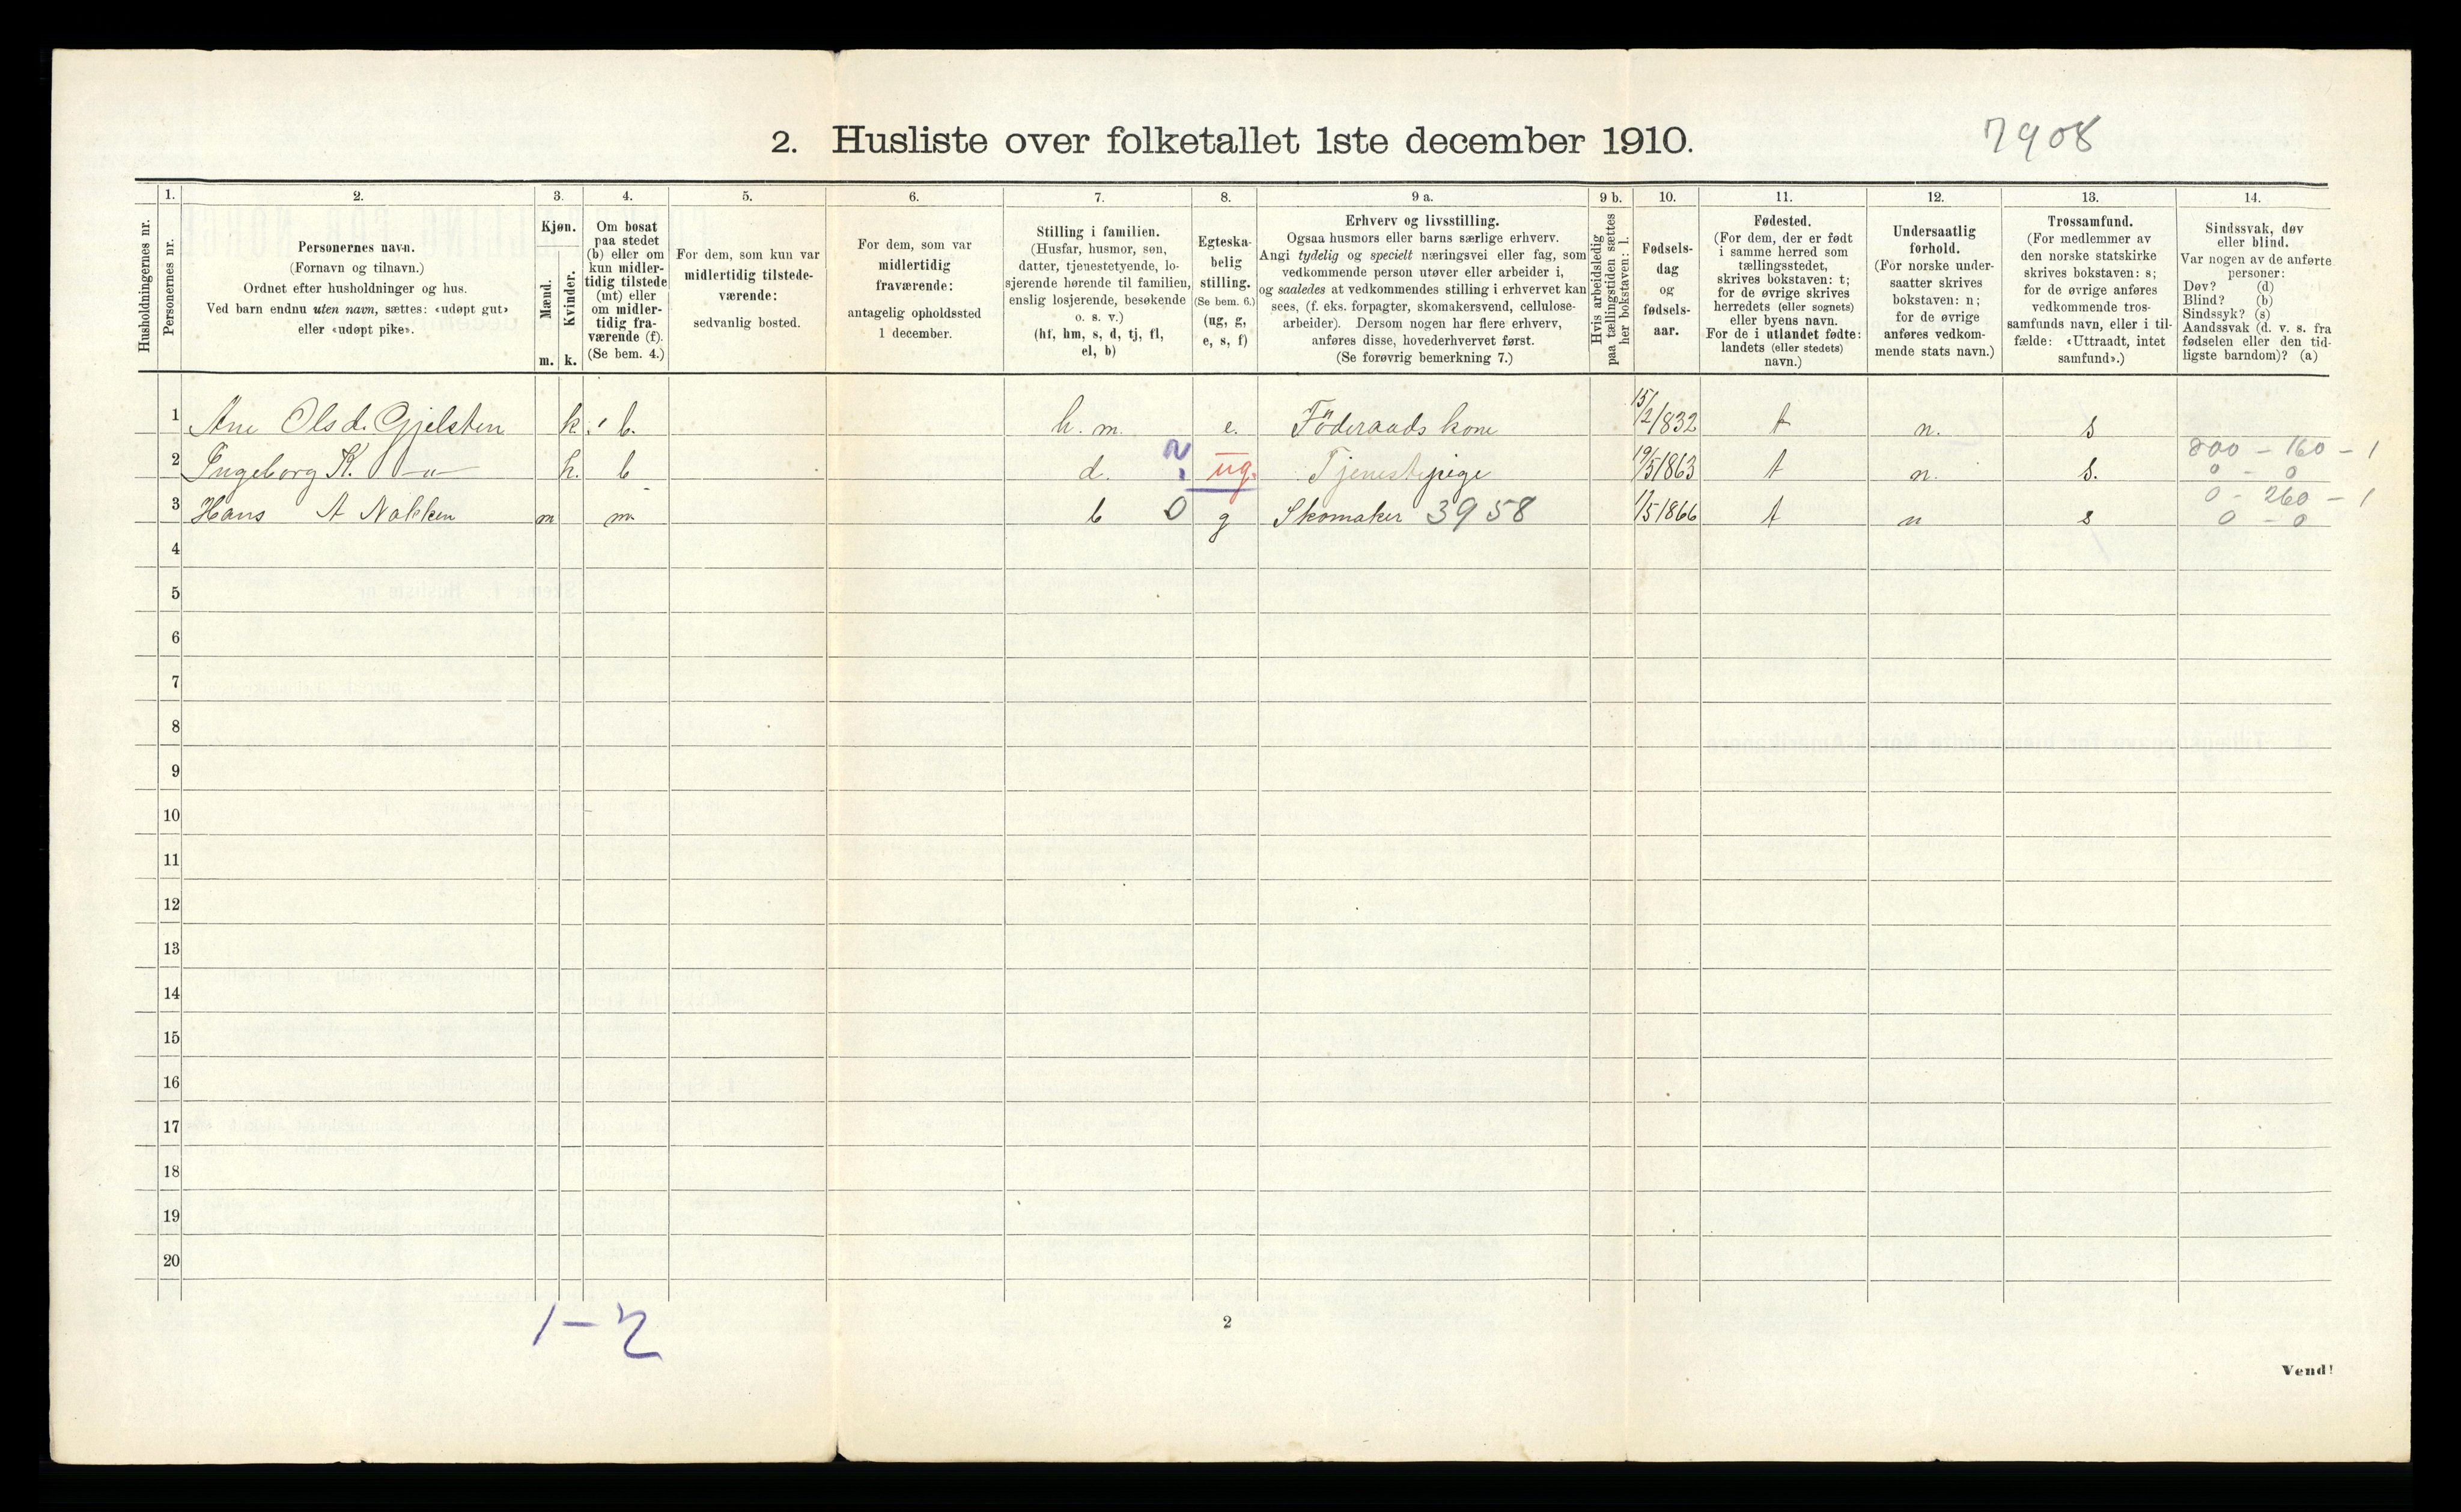 2. Husliste over folketallet 1ste december 1910.
7908
Husholdningernes nr.
1.
Personernes nr.
2.
Personernes navn.
(Fornavn og tilnavn.)
Ordnet efter husholdninger og hus.
Ved barn endnu uten navn, sættes: «udøpt gut»
eller «udøpt pike».
3.
Kjøn.
Mænd.
Kvinder.
m. k.
4.
Om bosat
paa stedet
(b) eller om
kun midler-
tidig tilstede
(mt) eller
om midler-
tidig fra-
værende (f).
(Se bem. 4.)
5.
For dem, som kun var
midlertidig tilstede-
værende:
sedvanlig bosted.
6.
For dem, som var
midlertidig
fraværende:
antagelig opholdssted
1 december.
7.
Stilling i familien.
(Husfar, husmor, søn,
datter, tjenestetyende, lo-
sjerende hørende til familien,
enslig losjerende, besøkende
o. s. v.)
(hf, hm, s, d, tj, fl,
el, b)
8.
Egteska-
belig
stilling.
(Se bem. 6.)
(ug, g,
e, s, f)
9 a.
Erhverv og livsstilling.
Ogsaa husmors eller barns særlige erhverv.
Angi tydelig og specielt næringsvei eller fag, som
vedkommende person utøver eller arbeider i,
og saaledes at vedkommendes stilling i erhvervet kan
sees, (f. eks. forpagter, skomakersvend, cellulose-
arbeider). Dersom nogen har flere erhverv,
anføres disse, hovederhvervet først.
(Se forøvrig bemerkning 7.)
9 b.
Hvis arbeidsledig
paa tællingstiden sættes
her bokstaven: l.
10.
Fødsels-
dag
og
fødsels-
aar.
11.
Fødested.
(For dem, der er født
i samme herred som
tællingsstedet,
skrives bokstaven: t;
for de øvrige skrives
herredets (eller sognets)
eller byens navn.
For de i utlandet fødte:
landets (eller stedets)
navn.)
12.
Undersaatlig
forhold.
(For norske under-
saatter skrives
bokstaven: n;
for de øvrige
anføres vedkom-
mende stats navn.)
13.
Trossamfund.
(For medlemmer av
den norske statskirke
skrives bokstaven: s;
for de øvrige anføres
vedkommende tros-
samfunds navn, eller i til-
fælde: «Uttraadt, intet
samfund».)
14.
Sindssvak, døv
eller blind.
Var nogen av de anførte
personer:
Døv? (d)
Blind? (b)
Sindssyk? (s)
Aandssvak (d. v. s. fra
fødselen eller den tid-
ligste barndom)? (a)
1 Ane Olsd. Gjelsten k. b. h. m. e. Föderaads kone 15/2/832 t n. s
800 - 160 - 1
2 Ingeborg K. -„- k. b d. 2 ug. Tjenestepige 19/5/863 t n. s. 0 - 0
0 - 260 - 1
3 Hans A Nakken m m b 0 g Skomaker 3958 1/5/866 t n s 0 - 0
4
5
6
7
8
9
10
11
12
13
14
15
16
17
18
19
20
1-2
2
Vend!